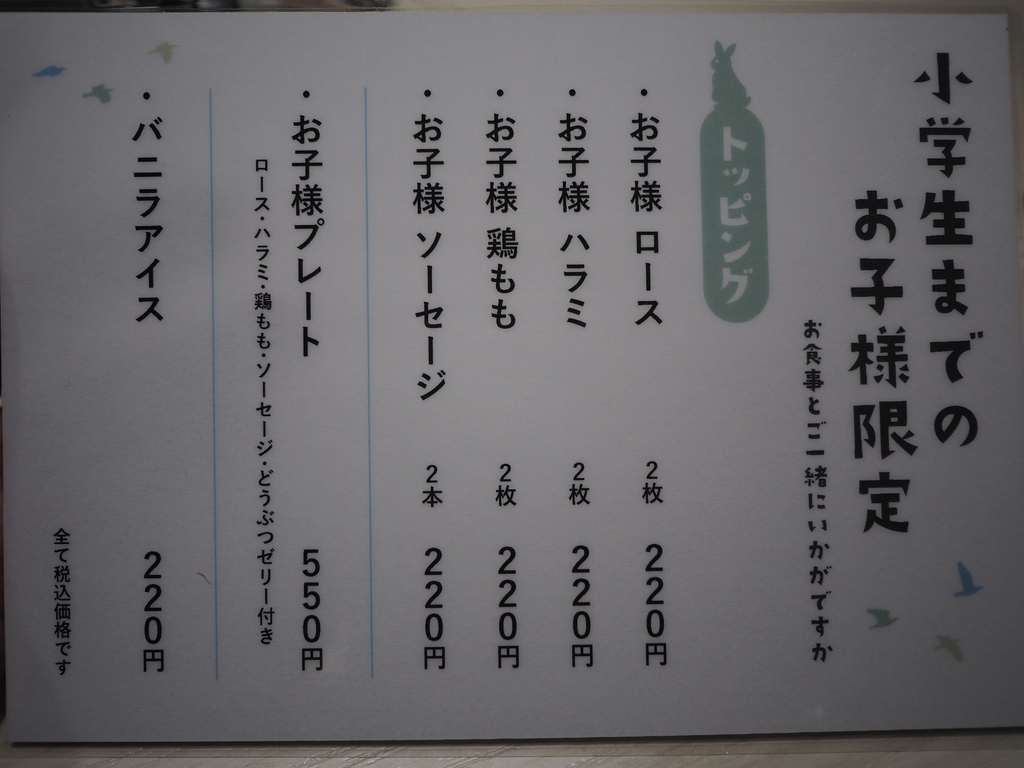 小学生までの
お子様限定
お食事とご一緒にいかがですか
トッピング
・お子様 ロース 2枚 220円
・お子様 ハラミ 2枚 220円
・お子様 鶏もも 2枚 220円
・お子様 ソーセージ 2本 220円
・お子様プレート 550円
ロース・ハラミ・鶏もも・ソーセージ・どうぶつゼリー付き
・バニラアイス 220円
全て税込価格です